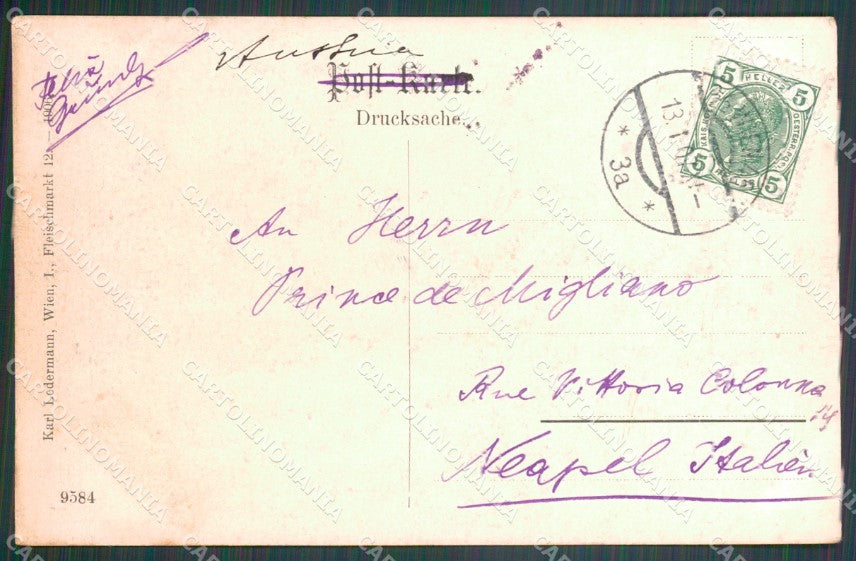 Austria
Post-Karte.
Drucksache.
An Herrn
Prince de Migliano
Rue Vittoria Colonna
14
Neapel Italien
Karl Ledermann, Wien, I., Fleischmarkt 12. — 190
9584
5 HELLER 5
5 5
WIEN
13.1
* 3a *
CARTOLINOMANIA